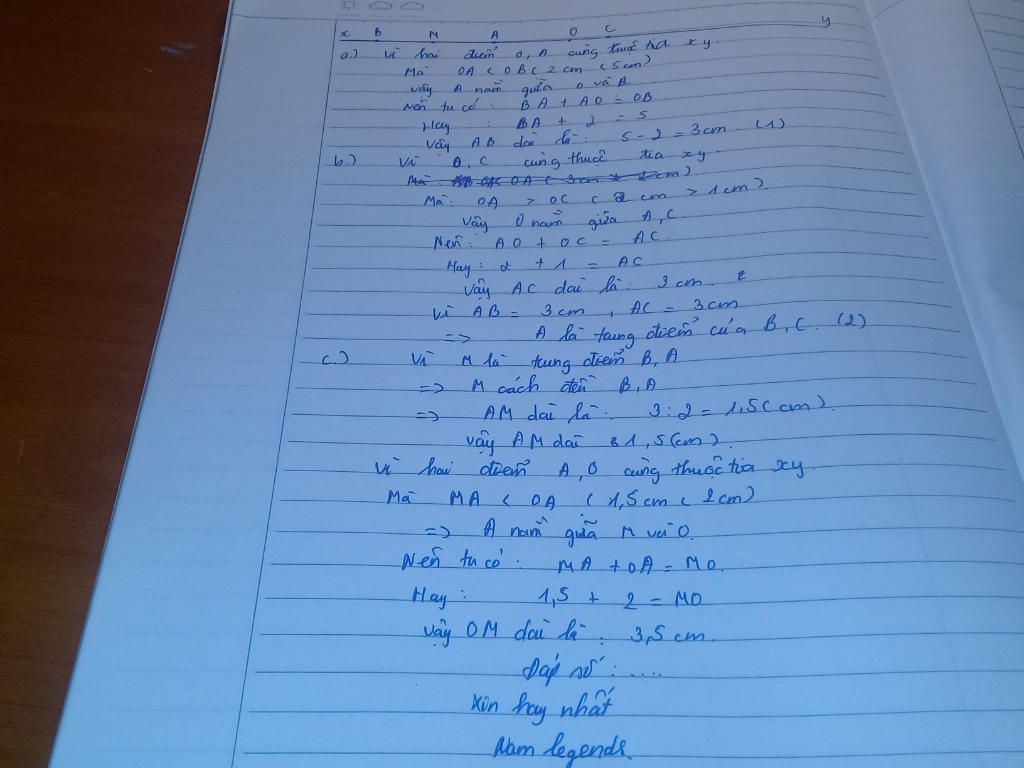 x B M A O C y
a.) Vì hai điểm O, A cùng thuộc tia xy.
Mà OA < OB ( 2 cm < 5cm)
Vậy A nằm giữa O và B.
Nên ta có : BA + AO = OB
Hay : BA + 2 = 5
Vậy AB dài là : 5 - 2 = 3 cm. (1)
b.) Vì B, C cùng thuộc tia xy
Mà: OA > OC ( 2 cm > 1 cm)
Vậy O nằm giữa A, C.
Nên: AO + OC = AC.
Hay : 2 + 1 = AC
Vậy AC dài là : 3 cm.
Vì AB = 3 cm , AC = 3 cm
=> A là trung điểm của B, C. (2)
c.) Vì M là trung điểm B, A
=> M cách đều B, A
=> AM dài là : 3 : 2 = 1,5 ( cm).
Vậy AM dài 1,5 (cm).
Vì hai điểm A, O cùng thuộc tia xy.
Mà MA < OA ( 1,5 cm < 2 cm)
=> A nằm giữa M và O.
Nên ta có : MA + OA = MO.
Hay : 1,5 + 2 = MO
Vậy OM dài là : 3,5 cm.
Đáp số : ....
Xin hay nhất
Nam legends.